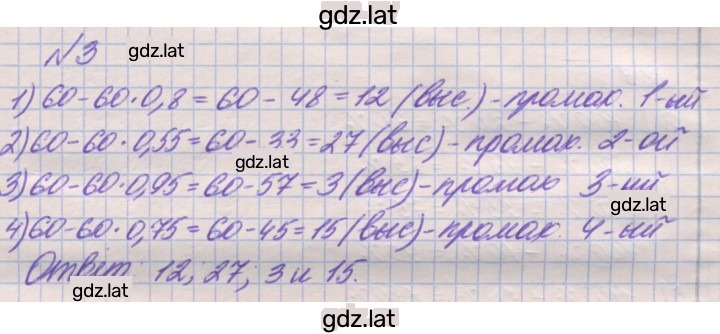 gdz.lat
№3
gdz.lat
1) 60-60·0,8=60-48=12 (выс.)-промах. 1-ый
2) 60-60·0,55=60-33=27 (выс)-промах. 2-ой
gdz.lat
3) 60-60·0,95=60-57=3 (выс)-промах 3-ий
gdz.lat
4) 60-60·0,75=60-45=15 (выс)-промах. 4-ый
Ответ: 12, 27, 3 и 15.
gdz.lat
gdz.lat